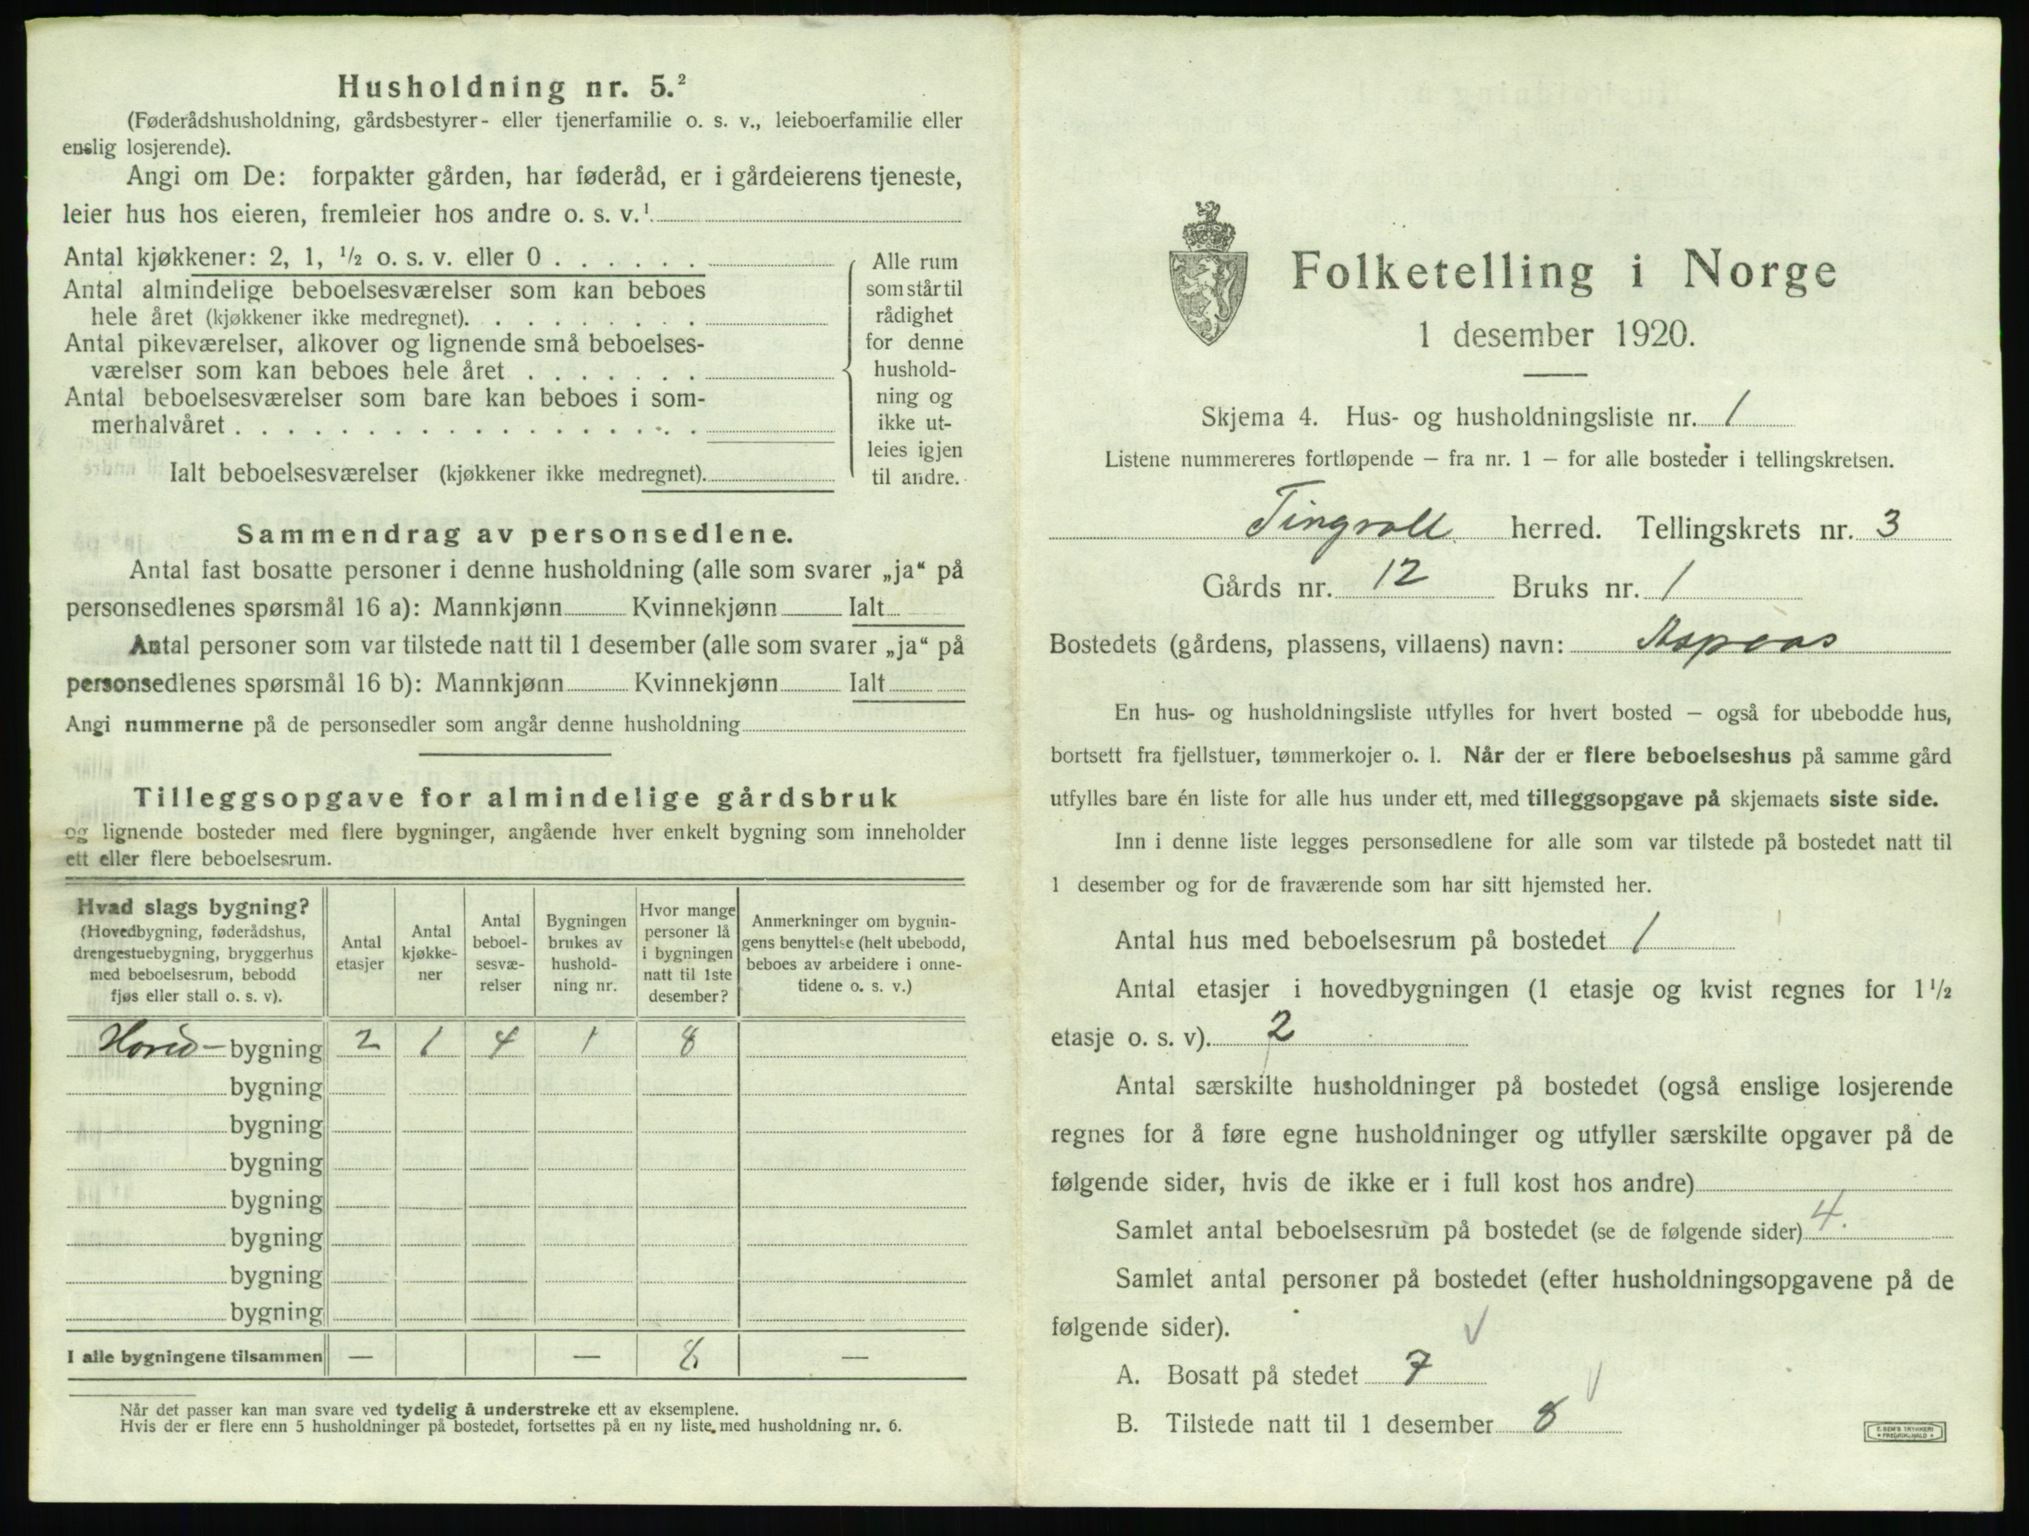 Husholdning nr. 5.²
(Føderådshusholdning, gårdsbestyrer- eller tjenerfamilie o. s. v., leieboerfamilie eller
enslig losjerende).
Angi om De: forpakter gården, har føderåd, er i gårdeierens tjeneste,
leier hus hos eieren, fremleier hos andre o. s. v.¹
Antal kjøkkener: 2, 1, ½ o. s. v. eller 0 . . . . . .
Antal almindelige beboelsesværelser som kan beboes
hele året (kjøkkener ikke medregnet). . . . . . . . .
Antal pikeværelser, alkover og lignende små beboelses-
værelser som kan beboes hele året . . . . . . .
Antal beboelsesværelser som bare kan beboes i som-
merhalvåret . . . . . . . . . . . . . . . . . .
Ialt beboelsesværelser (kjøkkener ikke medregnet).
Alle rum
som står til
rådighet
for denne
hushold-
ning og
ikke ut-
leies igjen
til andre.
Sammendrag av personsedlene.
Antal fast bosatte personer i denne husholdning (alle som svarer „ja“ på
personsedlenes spørsmål 16 a): Mannkjønn Kvinnekjønn Ialt
Antal personer som var tilstede natt til 1 desember (alle som svarer „ja“ på
personsedlenes spørsmål 16 b): Mannkjønn Kvinnekjønn Ialt
Angi nummerne på de personsedler som angår denne husholdning
Tilleggsopgave for almindelige gårdsbruk
og lignende bosteder med flere bygninger, angående hver enkelt bygning som inneholder
ett eller flere beboelsesrum.
Hvad slags bygning?
(Hovedbygning, føderådshus,
drengestuebygning, bryggerhus
med beboelsesrum, bebodd
fjøs eller stall o. s. v).
Antal
etasjer
Antal
kjøkke-
ner
Antal
beboel-
sesvæ-
relser
Bygningen
brukes av
hushold-
ning nr.
Hvor mange
personer lå
i bygningen
natt til 1ste
desember?
Anmerkninger om bygnin-
gens benyttelse (helt ubebodd,
beboes av arbeidere i onne-
tidene o. s. v.)
Hoved- bygning 2 1 4 1 8
bygning
bygning
bygning
bygning
bygning
bygning
bygning
I alle bygningene tilsammen — — 8 —
Når det passer kan man svare ved tydelig å understreke ett av eksemplene.
Hvis der er flere enn 5 husholdninger på bostedet, fortsettes på en ny liste, med husholdning nr. 6.
Folketelling i Norge
1 desember 1920.
Skjema 4. Hus- og husholdningsliste nr. 1
Listene nummereres fortløpende – fra nr. 1 – for alle bosteder i tellingskretsen.
Tingvoll herred. Tellingskrets nr. 3
Gårds nr. 12 Bruks nr. 1
Bostedets (gårdens, plassens, villaens) navn: Aspaas
En hus- og husholdningsliste utfylles for hvert bosted – også for ubebodde hus,
bortsett fra fjellstuer, tømmerkojer o. l. Når der er flere beboelseshus på samme gård
utfylles bare én liste for alle hus under ett, med tilleggsopgave på skjemaets siste side.
Inn i denne liste legges personsedlene for alle som var tilstede på bostedet natt til
1 desember og for de fraværende som har sitt hjemsted her.
Antal hus med beboelsesrum på bostedet 1
Antal etasjer i hovedbygningen (1 etasje og kvist regnes for 1½
etasje o. s. v). 2
Antal særskilte husholdninger på bostedet (også enslige losjerende
regnes for å føre egne husholdninger og utfyller særskilte opgaver på de
følgende sider, hvis de ikke er i full kost hos andre)
Samlet antal beboelsesrum på bostedet (se de følgende sider) 4.
Samlet antal personer på bostedet (efter husholdningsopgavene på de
følgende sider).
A. Bosatt på stedet 7
B. Tilstede natt til 1 desember 8
E. SEM'S TRYKKERI
FREDRIKSHALD